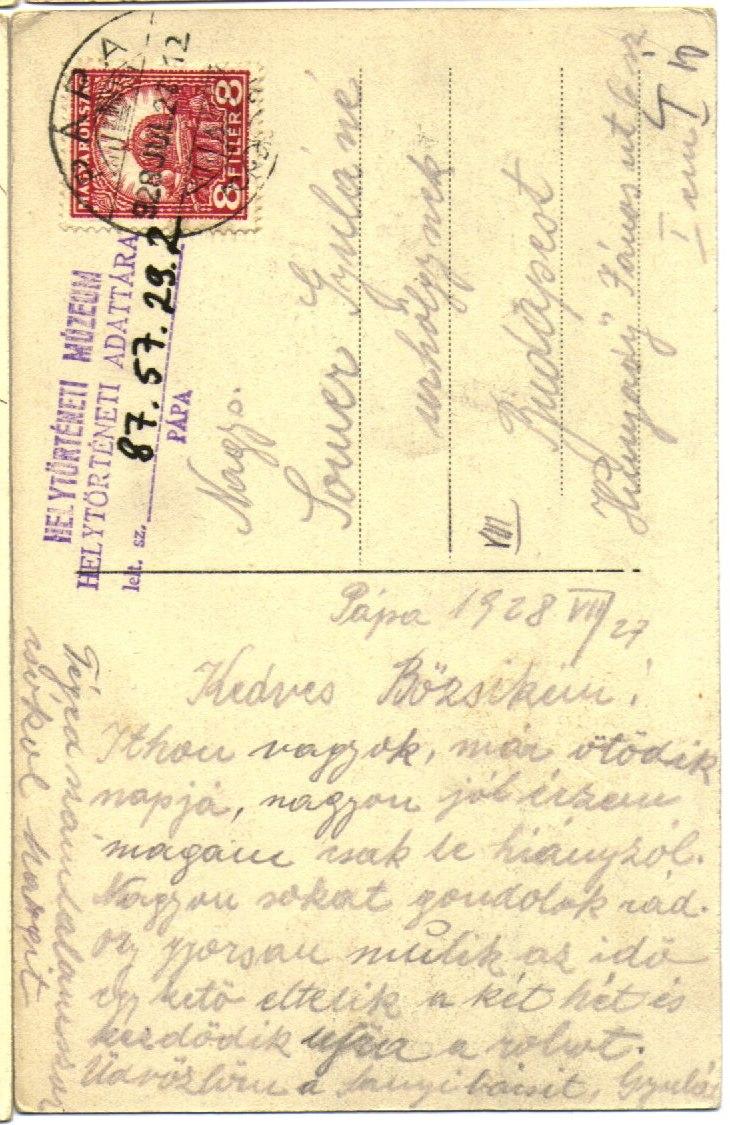 PÁPA
928 JUL 2 12
MAGYARORSZÁG
8 FILLÉR 8
HELYTÖRTÉNETI MÚZEUM
HELYTÖRTÉNETI ADATTÁRA
lelt. sz. 87.57.29.2
PÁPA
Nagys.
Somer Gyuláné
urhölgynek
Budapest
VIII
Hunyady János ut
I em
Pápa 1928 VII/27
Kedves Bözsikém!
Ithon vagyok, már ötödik
napjá, nagyon jól érzem
magam csak te hiányzól.
Nagyon sokat gondolok rád.
oly gyorsan múlik az idő
egy kettő eltelik a két hét és
kezdődik ujra a robot.
Üdvözlöm a Sanyi bácsit, Gyulát
Téged számtalanszor
csókol Margit